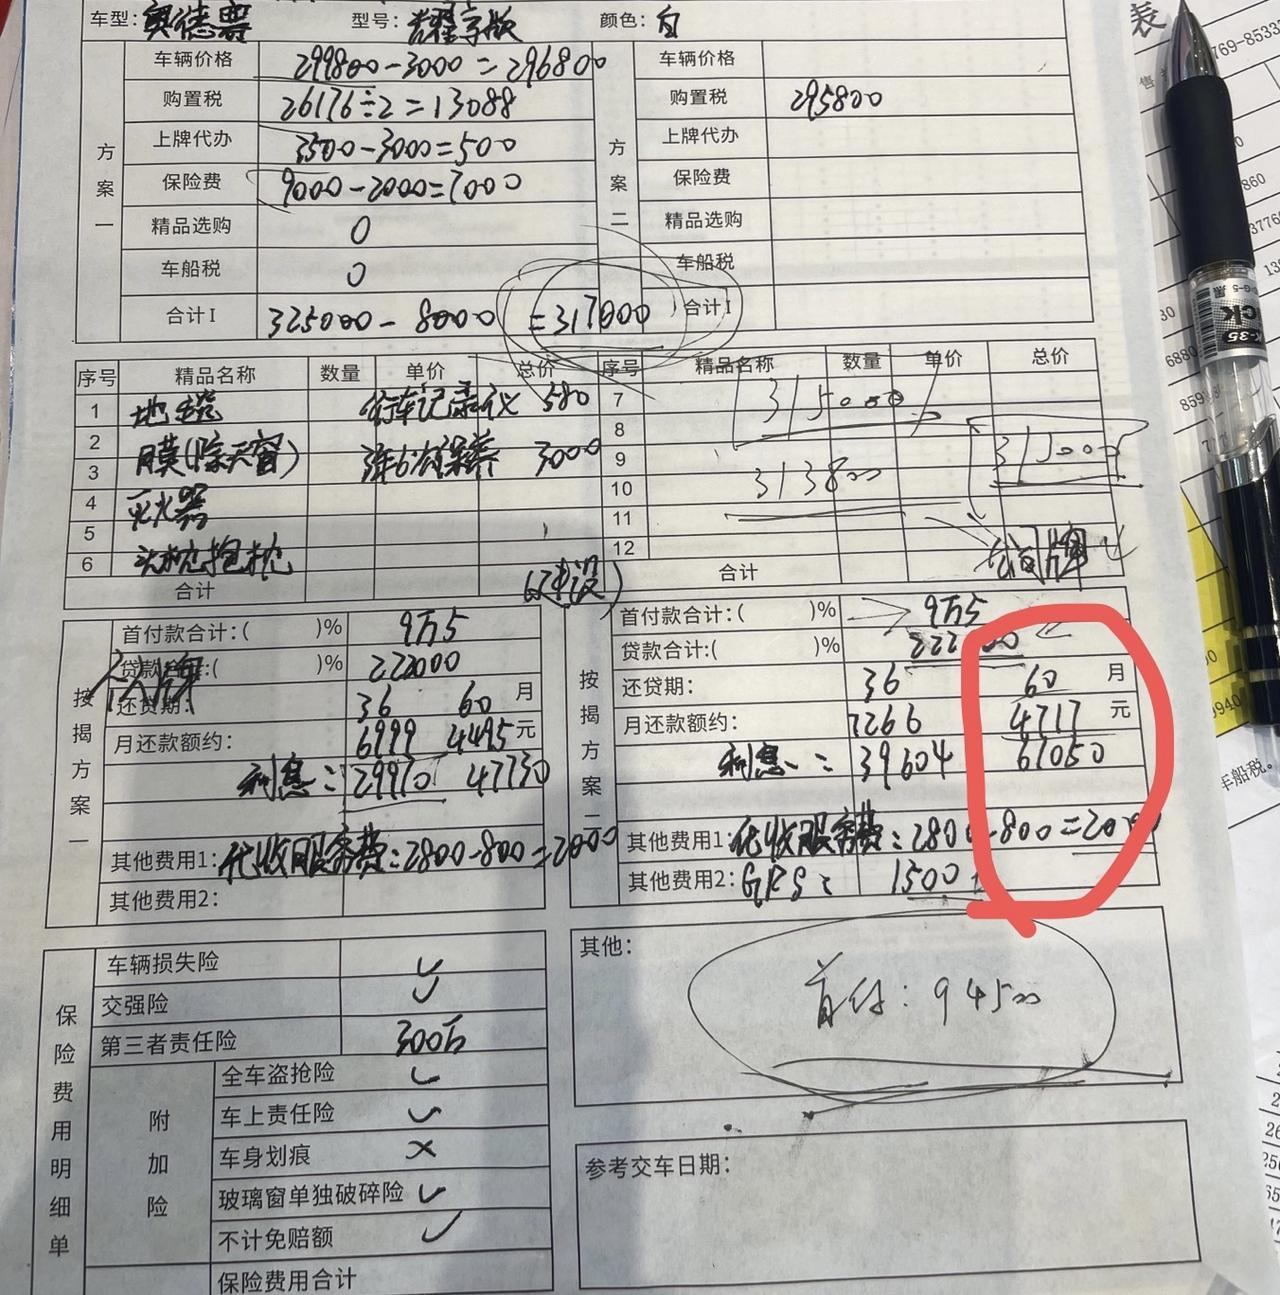 车型：奥德赛 型号：耀享版 颜色：白
表
769-8533
方案一
车辆价格 299800-3000=296800
购置税 26176÷2=13088
上牌代办 3500-3000=500
保险费 9000-2000=7000
精品选购 0
车船税 0
合计I 325000-8000 =317000
方案二
车辆价格
购置税 295800
上牌代办
保险费
精品选购
车船税
合计I
序号 精品名称 数量 单价 总价 序号 精品名称 数量 单价 总价
1 地毯 行车记录仪 580 7
2 膜(除天窗) 3年6次保养 3000 8
3 9
4 灭火器 10
5 11
6 头枕抱枕 12
315000
313800
合计 (建设) 合计
公司牌
按揭方案一
首付款合计:( )% 9万5
贷款合计:( )% 222000
还贷期: 36 60 月
月还款额约: 6999 4495 元
利息: 29970 47730
其他费用1: 代收服务费:2800-800=2000
其他费用2:
按揭方案二
首付款合计:( )% 9万5
贷款合计:( )% 222000
还贷期: 36 60 月
月还款额约: 7266 4717 元
利息: 39604 61050
其他费用1: 代收服务费:2800-800=2000
其他费用2: GPS: 1500
保险费用明细单
车辆损失险 ✓
交强险 ✓
第三者责任险 300万
附加险
全车盗抢险 ✓
车上责任险 ✓
车身划痕 ×
玻璃窗单独破碎险 ✓
不计免赔额 ✓
保险费用合计
其他:
首付:94500
参考交车日期:
车船税。